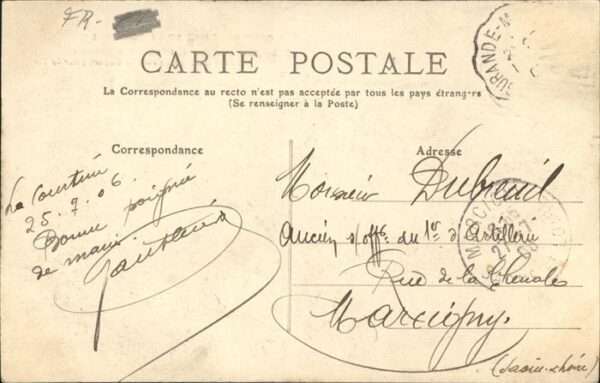 FR-
CARTE POSTALE
La Correspondance au recto n'est pas acceptée par tous les pays étrangers
(Se renseigner à la Poste)
Correspondance
Adresse
La Courtine
25.9.06.
Bonne poignée
de main
Monsieur Dubreuil
Ancien s/off. du 1er d'Artillerie
Rue de la
Marcigny.
(Saône-&-Loire)